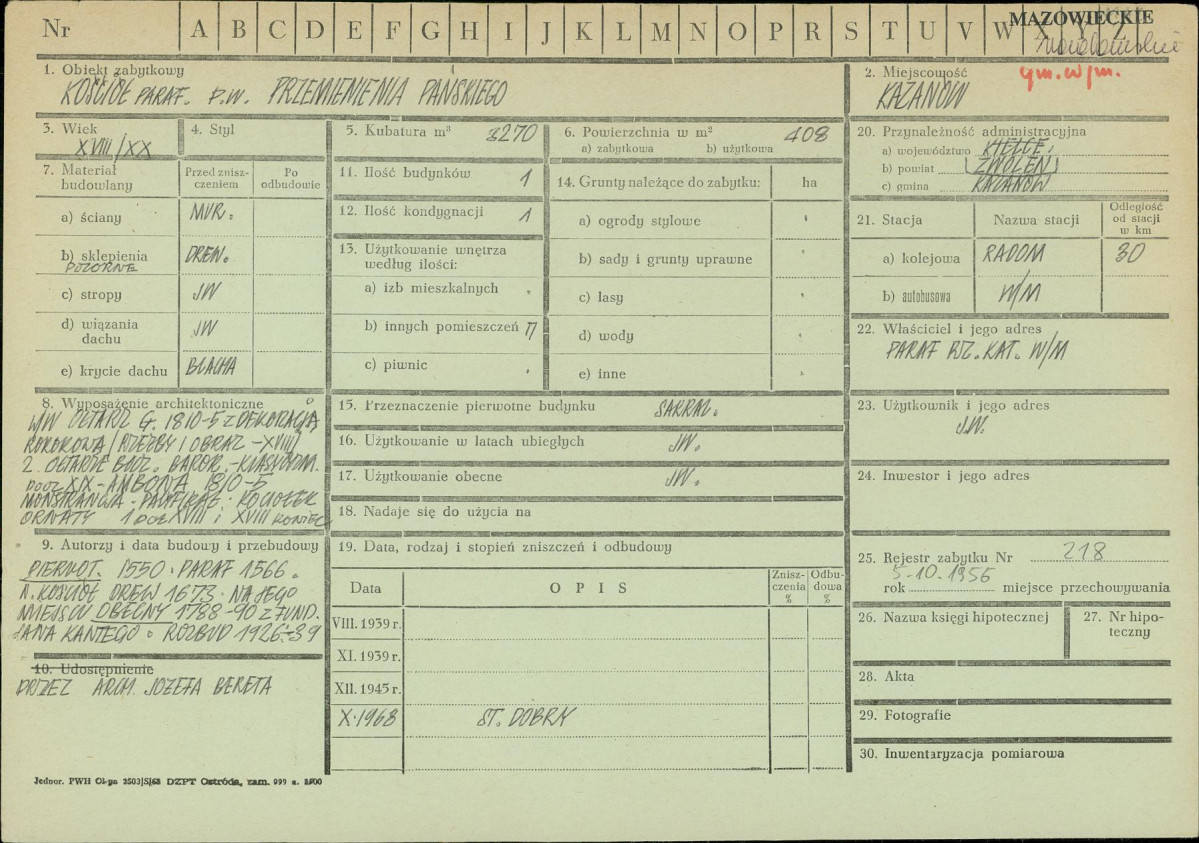 Nr A B C D E F G H I J K L M N O P R S T U V W X Y Z
MAZOWIECKIE
gm. w/m.
1. Obiekt zabytkowy
KOŚCIÓŁ PARAF. P.W. PRZEMIENIENIA PAŃSKIEGO
2. Miejscowość
KAZANÓW
3. Wiek
XVIII/XX
4. Styl
5. Kubatura m³ 3270
6. Powierzchnia w m² 408
a) zabytkowa b) użytkowa
7. Materiał budowlany
Przed zniszczeniem
Po odbudowie
a) ściany MUR.
b) sklepienia DREW.
POZORNE
c) stropy JW
d) wiązania dachu JW
e) krycie dachu BLACHA
8. Wyposażenie architektoniczne
W/W OŁTARZ G. 1810-5 Z DEKORACJĄ
ROKOKOWĄ /RZEŹBY I OBRAZ - XVIII/
2. OŁTARZE BOCZ. BAROK.-KLASYCYZM.
POCZ XIX - AMBONA 1810-5
MONSTRANCJA - PACYFIKAŁ - KOCIOŁEK
ORNATY 1 POŁ XVIII i XVIII KONIEC
9. Autorzy i data budowy i przebudowy
PIERWOT. 1550. PARAF 1566.
N. KOŚCIÓŁ DREW 1673. NA JEGO
MIEJSCU OBECNY 1788-90 Z FUND.
JANA KANTEGO. ROZBUD 1926-39
10. Udostępnienie
PRZEZ ARCH. JÓZEFA BERETA
11. Ilość budynków 1
12. Ilość kondygnacji 1
13. Użytkowanie wnętrza według ilości:
a) izb mieszkalnych
b) innych pomieszczeń 7
c) piwnic
14. Grunty należące do zabytku: ha
a) ogrody stylowe
b) sady i grunty uprawne
c) lasy
d) wody
e) inne
15. Przeznaczenie pierwotne budynku SAKRAL.
16. Użytkowanie w latach ubiegłych JW.
17. Użytkowanie obecne JW.
18. Nadaje się do użycia na
19. Data, rodzaj i stopień zniszczeń i odbudowy
Data
O P I S
Zniszczenia %
Odbudowa %
VIII. 1939 r.
XI. 1939 r.
XII. 1945 r.
X.1968 ST. DOBRY
20. Przynależność administracyjna
a) województwo KIELCE,
b) powiat (ZWOLEŃ)
c) gmina KAZANÓW
21. Stacja
Nazwa stacji
Odległość od stacji w km
a) kolejowa RADOM 30
b) autobusowa W/M
22. Właściciel i jego adres
PARAF RZ. KAT. W/M
23. Użytkownik i jego adres
J.W.
24. Inwestor i jego adres
25. Rejestr zabytku Nr 218
5-10.1956
rok miejsce przechowywania
26. Nazwa księgi hipotecznej
27. Nr hipoteczny
28. Akta
29. Fotografie
30. Inwentaryzacja pomiarowa
Jednor. PWH Ol-pn 2503/S/68 DZPT Ostróda, zam. 999 n. 1500